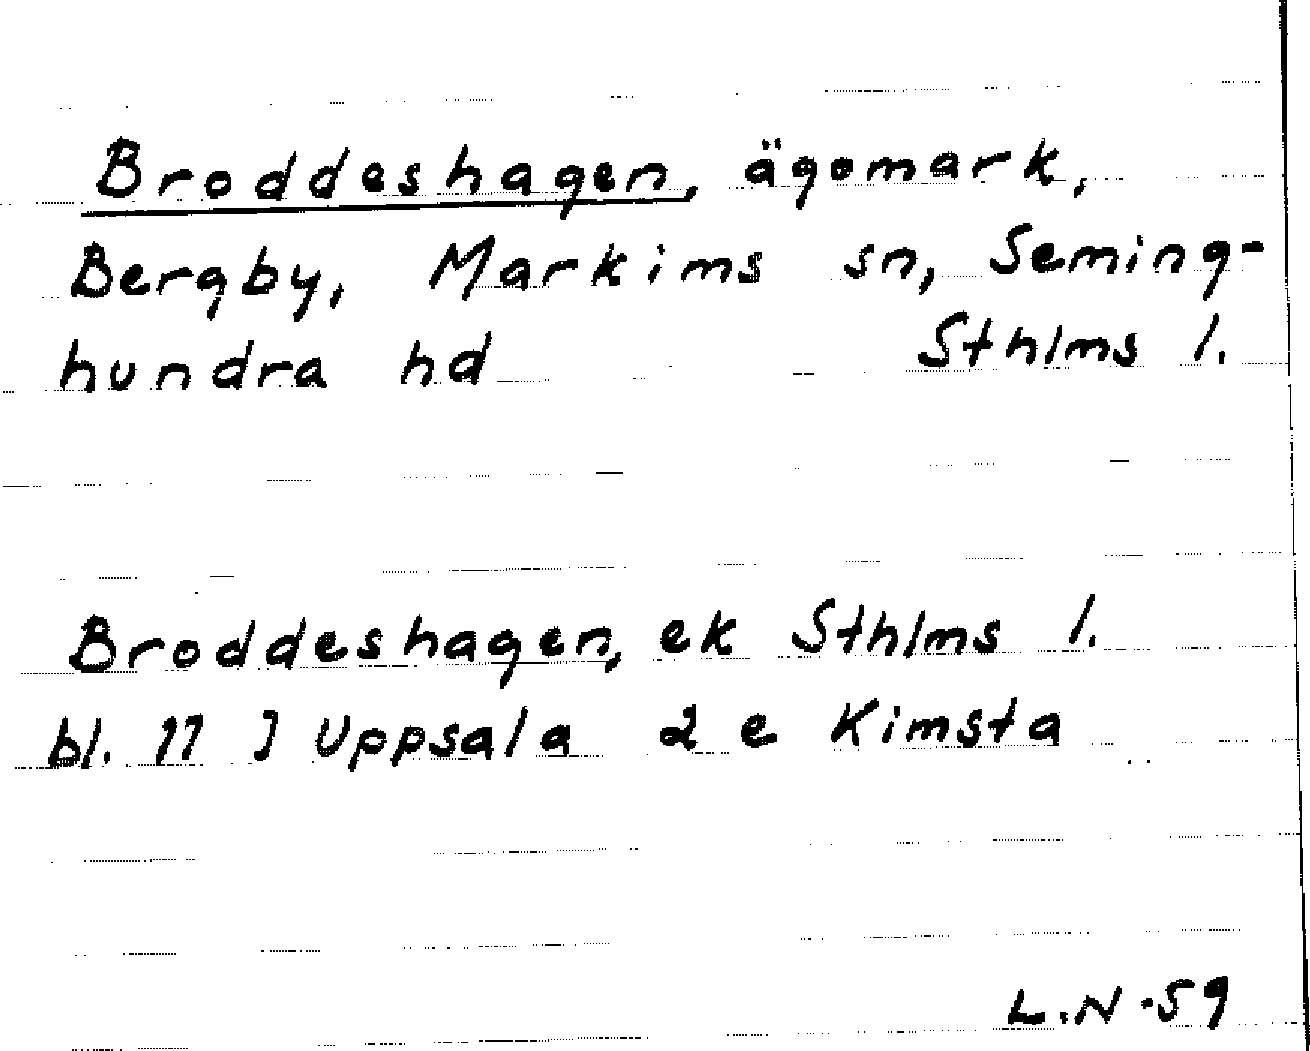 Broddeshagen, ägomark,
Bergby, Markims sn, Seming-
hundra hd Sthlms l.
Broddeshagen, ek Sthlms l.
bl. 11 J Uppsala 2 e Kimsta
L.N.59